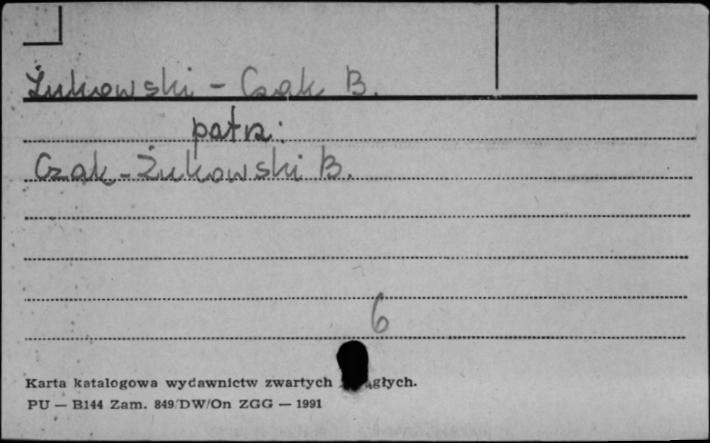 Żukowski - Czak B.
patrz:
Czak-Żukowski B.
6
Karta katalogowa wydawnictw zwartych
PU — B144 Zam. 849/DW/On ZGG — 1991